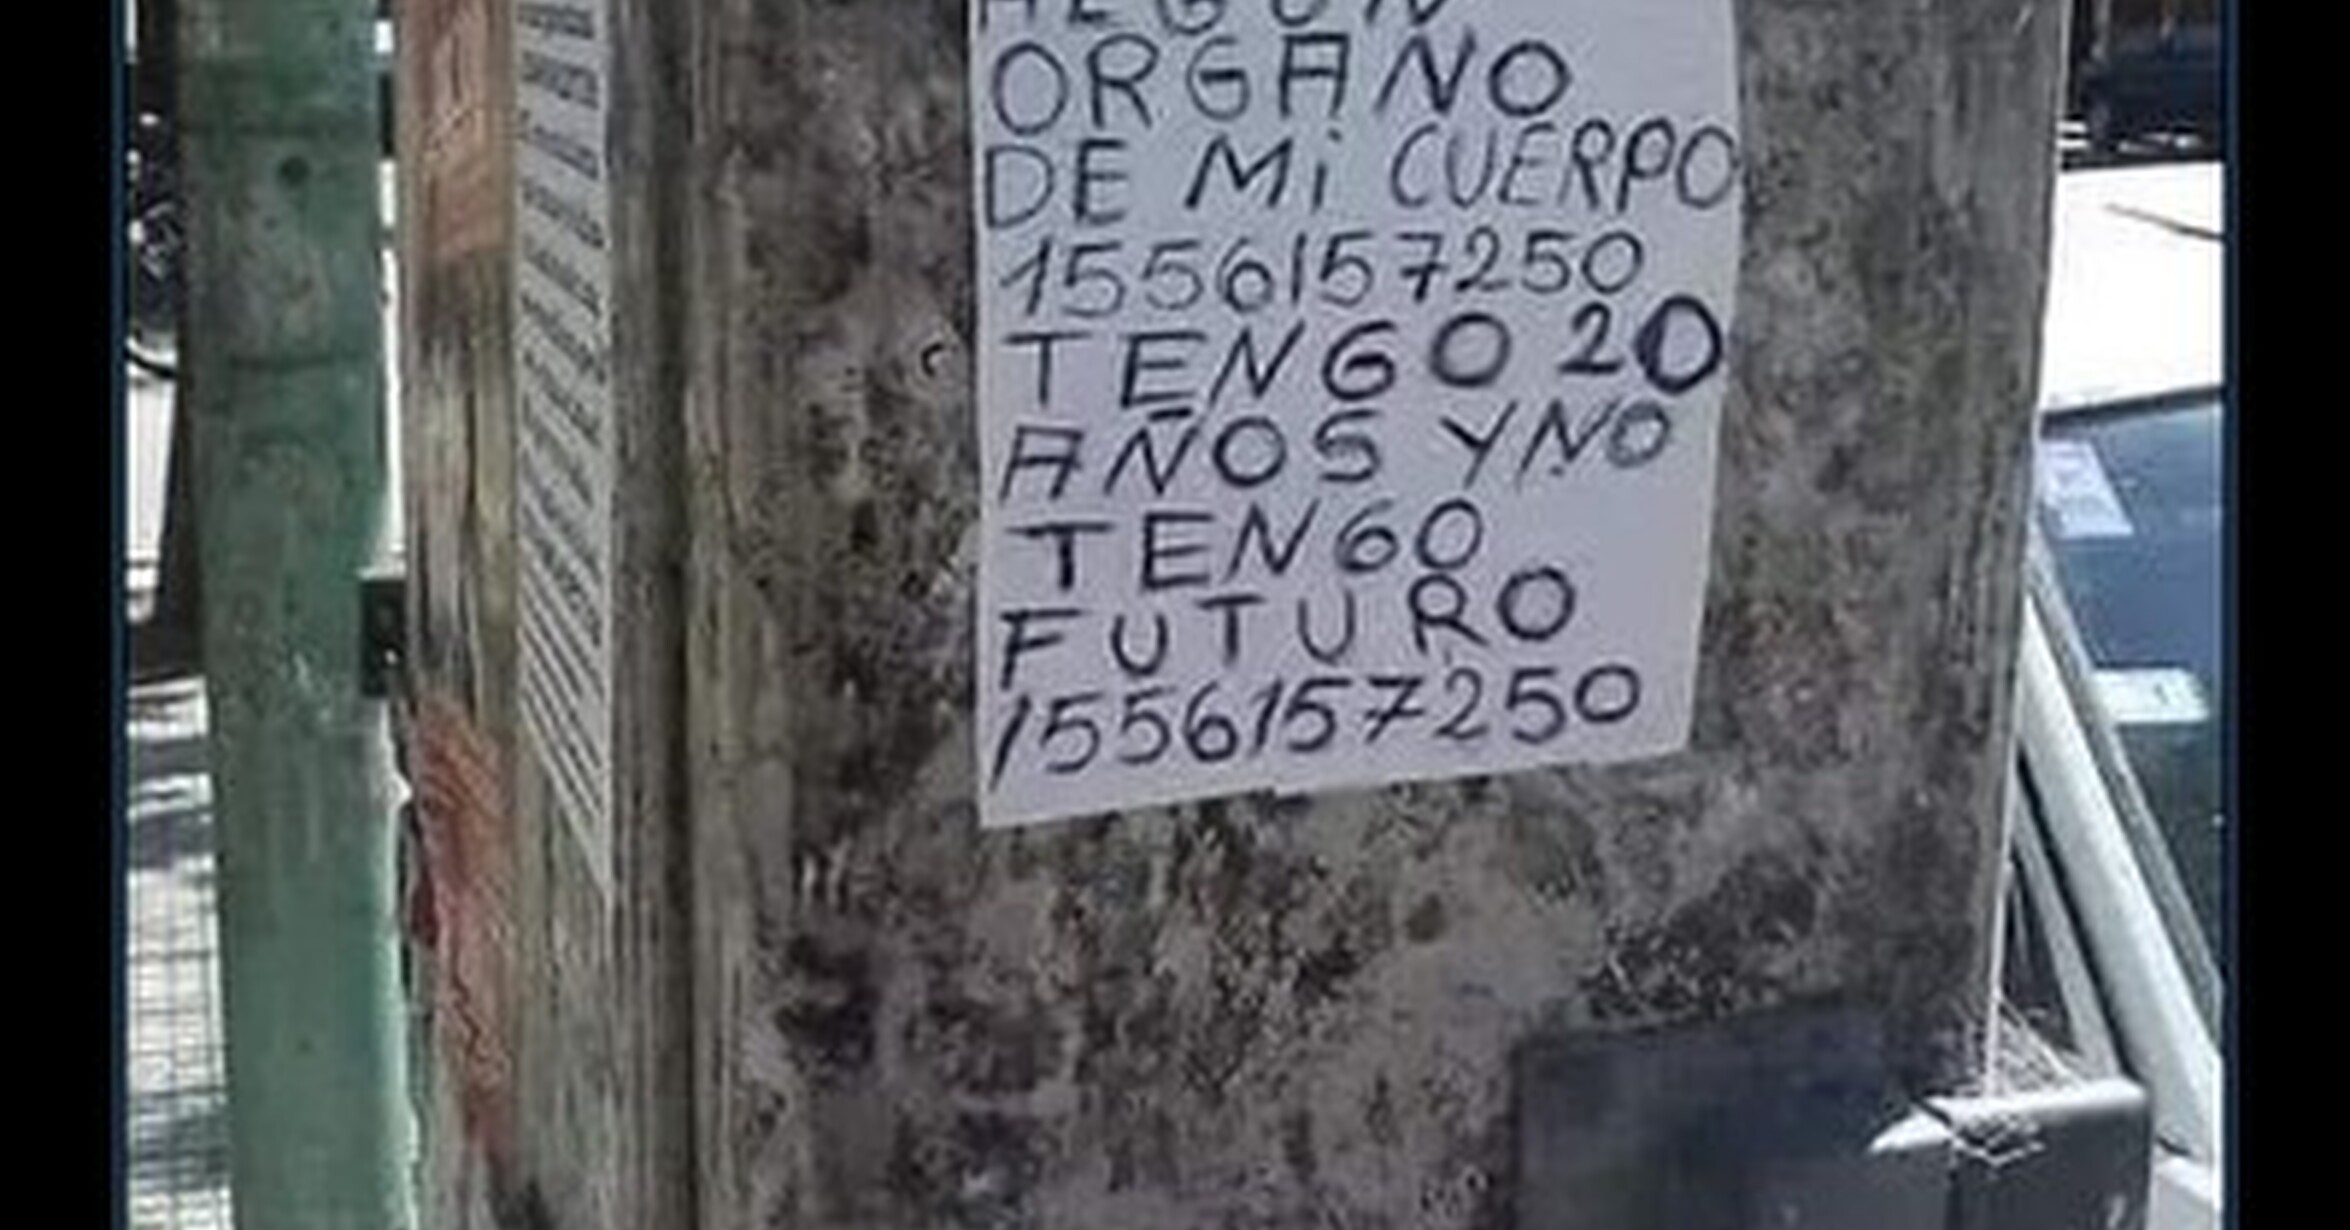 ALGUN
ORGANO
DE Mi CUERPO
1556157250
TENGO 20
AÑOS Y NO
TENGO
FUTURO
1556157250